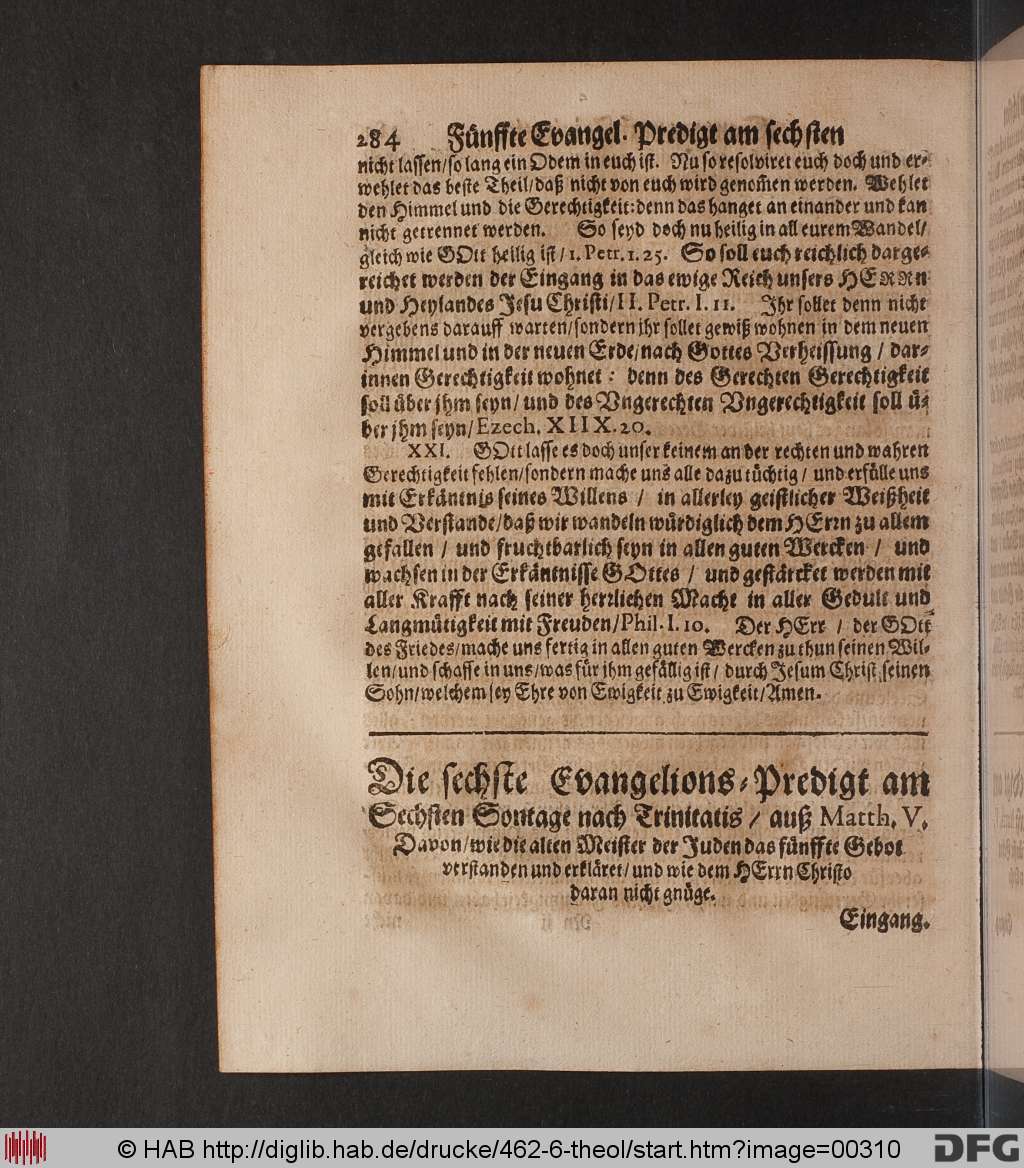 284 Fünffte Evangel. Predigt am sechsten
nicht lassen/so lang ein Odem in euch ist. Nu so resolviret euch doch und er-
wehlet das beste Theil/daß nicht von euch wird genom̃en werden. Wehlet
den Himmel und die Gerechtigkeit: denn das hanget an einander und kan
nicht getrennet werden. So seyd doch nu heilig in all eurem Wandel/
gleich wie GOtt heilig ist/1. Petr. 1. 25. So soll euch reichlich darge-
reichet werden der Eingang in das ewige Reich unsers HERRn
und Heylandes Jesu Christi/II. Petr. I. 11. Ihr sollet denn nicht
vergebens darauff warten/sondern jhr sollet gewiß wohnen in dem neuen
Himmel und in der neuen Erde/nach Gottes Verheissung / dar-
innen Gerechtigkeit wohnet: denn des Gerechten Gerechtigkeit
soll über jhm seyn/ und des Ungerechten Ungerechtigkeit soll ü-
ber jhm seyn/Ezech. XIIX. 20.
XXI. GOtt lasse es doch unser keinem an der rechten und wahren
Gerechtigkeit fehlen/sondern mache uns alle dazu tüchtig / und erfülle uns
mit Erkäntnis seines Willens / in allerley geistlicher Weißheit
und Verstande/daß wir wandeln würdiglich dem HErrn zu allem
gefallen / und fruchtbarlich seyn in allen guten Wercken / und
wachsen in der Erkäntnisse GOttes / und gestärcket werden mit
aller Krafft nach seiner herrlichen Macht in aller Gedult und
Langmütigkeit mit Freuden/Phil. I. 10. Der HErr / der GOtt
des Friedes/mache uns fertig in allen guten Wercken zu thun seinen Wil-
len/und schaffe in uns/was für jhm gefällig ist/ durch Jesum Christ seinen
Sohn/welchem sey Ehre von Ewigkeit zu Ewigkeit/Amen.
Die sechste Evangelions-Predigt am
Sechsten Sontage nach Trinitatis / auß Matth. V.
Davon/wie die alten Meister der Juden das fünffte Gebot
verstanden und erkläret/ und wie dem HErrn Christo
daran nicht gnüge.
Eingang.
© HAB http://diglib.hab.de/drucke/462-6-theol/start.htm?image=00310
DFG